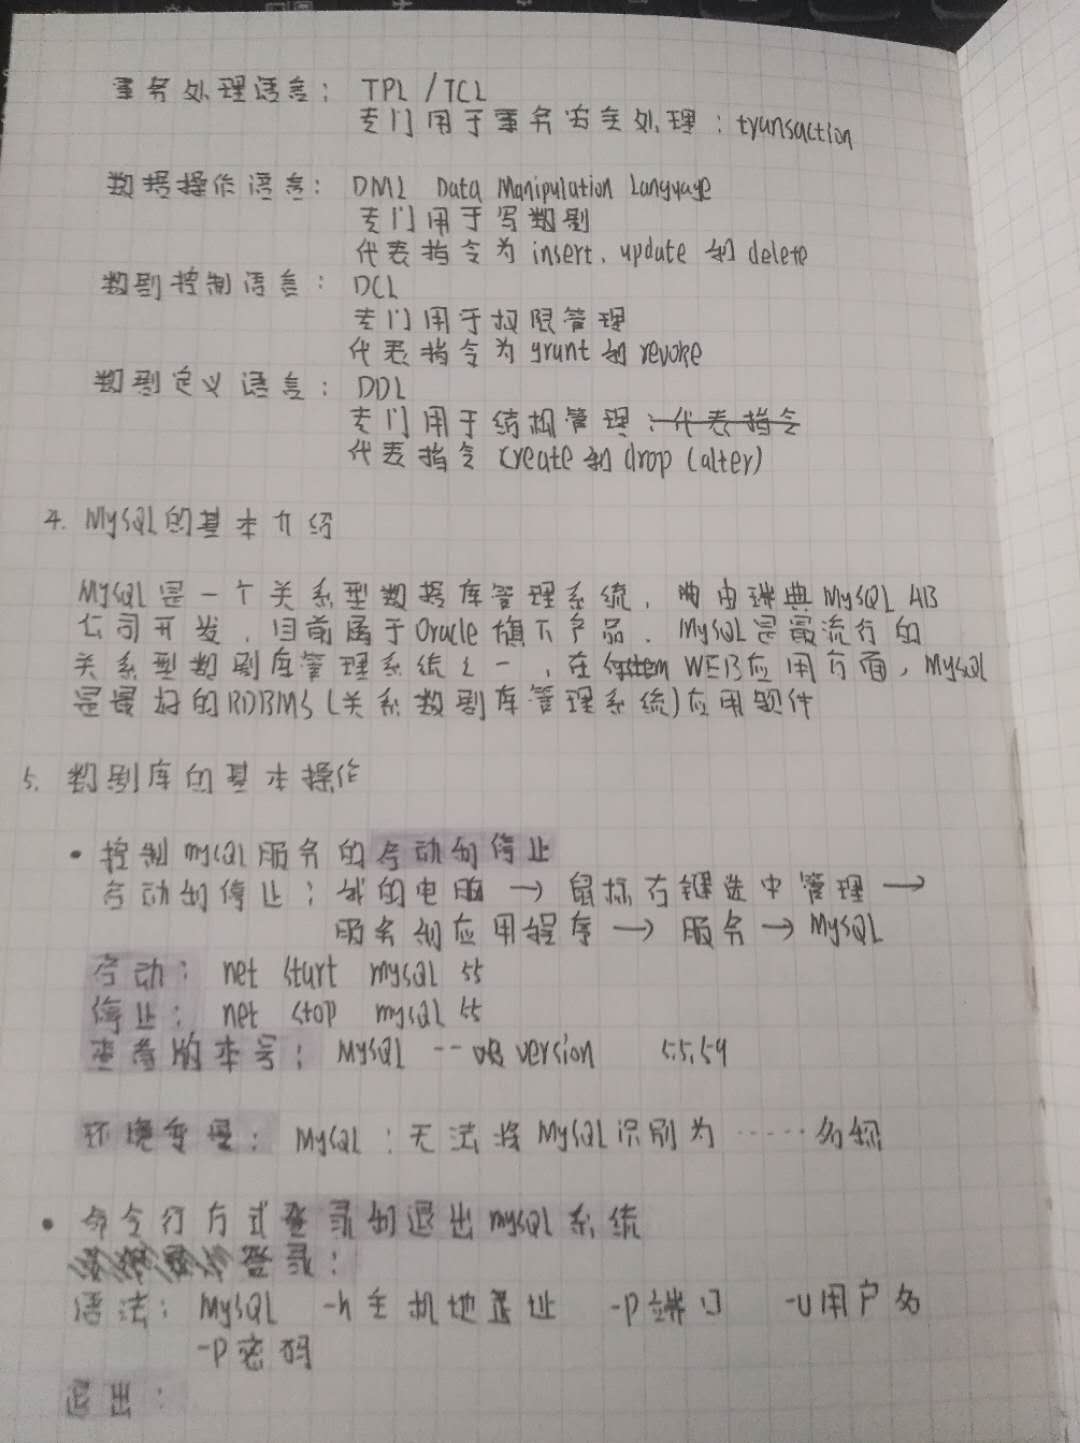 事务处理语言: TPL / TCL
专门用于事务安全处理: transaction
数据操作语言: DML Data Manipulation Language
专门用于写数剧
代表指令为 insert、update 和 delete
数剧控制语言: DCL
专门用于权限管理
代表指令为 grant 和 revoke
数剧定义语言: DDL
专门用于结构管理:代表指令
代表指令 create 和 drop (alter)
4. MySQL的基本介绍
MySQL是一个关系型数据库管理系统, 由瑞典MySQL AB
公司开发, 目前属于Oracle旗下产品. MySQL是最流行的
关系型数剧库管理系统之一, 在 WEB应用方面, MySQL
是最好的RDBMS (关系数剧库管理系统)应用软件
5. 数剧库的基本操作
• 控制mySQL服务的启动和停止
启动和停止: 我的电脑 → 鼠标右键选中管理 →
服务和应用程序 → 服务 → MySQL
启动: net start mysql 55
停止: net stop mysql 55
查看版本号: MySQL -- version 5.5.59
环境变量: MySQL : 无法将MySQL识别为 ······ 名称
• 命令行方式登录和退出mySQL系统
登录:
语法: MySQL -h主机地址 -P端口 -u用户名
-P密码
退出: